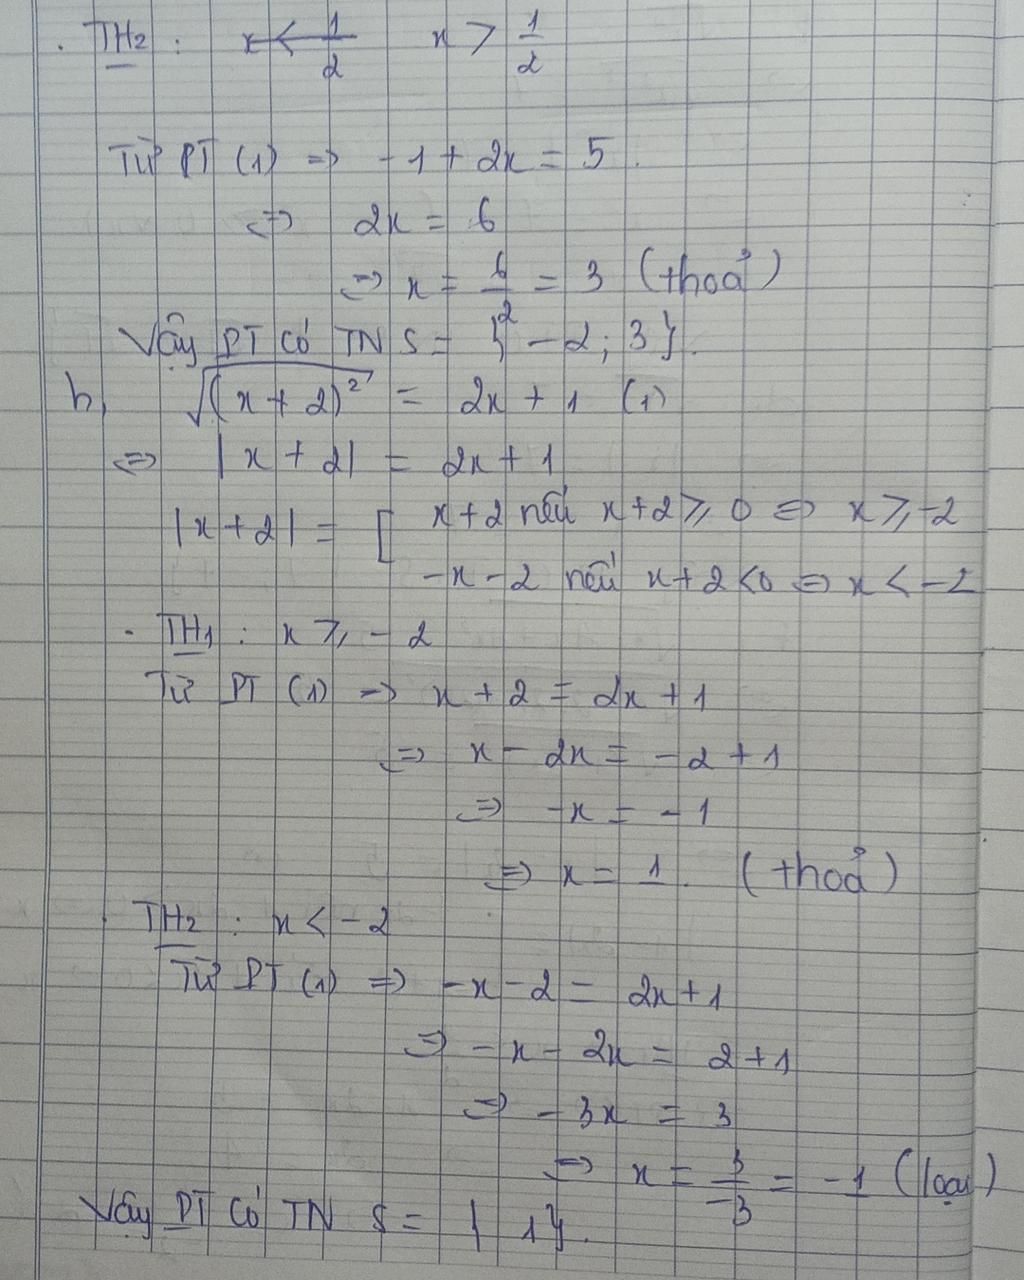 . TH2 : x < 1/2 x > 1/2
Từ PT (1) => -1 + 2x = 5.
<=> 2x = 6
=> x = 6/2 = 3 (thoả)
Vậy PT có TN S = { -2; 3}.
b, √(x+2)² = 2x + 1 (1)
<=> |x + 2| = 2x + 1
|x + 2| = [ x+2 nếu x+2 ⩾ 0 <=> x ⩾ -2
-x - 2 nếu x + 2 < 0 <=> x < -2
- TH1 : x ⩾ - 2
Từ PT (1) => x + 2 = 2x + 1
<=> x - 2x = -2 + 1
<=> -x = -1
<=> x = 1. (thoả)
. TH2 : x < -2
Từ PT (1) => -x - 2 = 2x + 1
=> -x - 2x = 2 + 1
=> -3x = 3
=> x = 3/-3 = -1 (loại)
Vậy PT có TN S = { 1}.